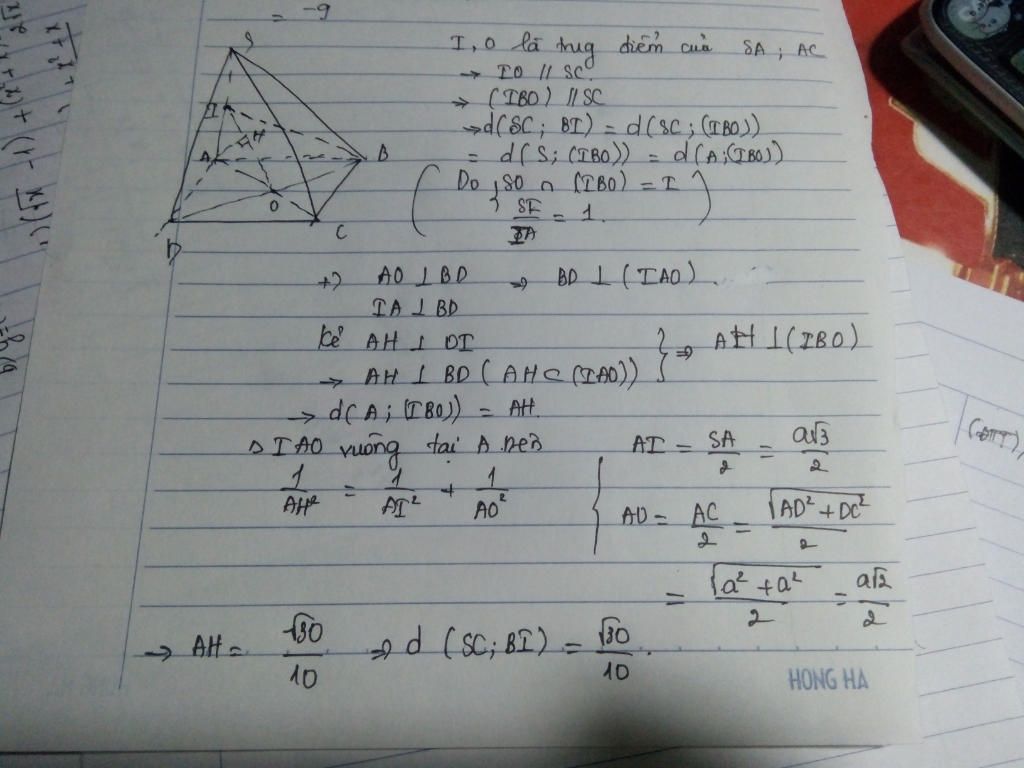 = -9
S
I
H
A
B
O
D
C
I, O là trug điểm của SA ; AC
→ IO // SC.
⇒ (IBO) // SC
→ d(SC ; BI) = d(SC ; (IBO))
= d(S ; (IBO)) = d(A ; (IBO))
( Do { SO ∩ (IBO) = I
SI/IA = 1. )
+) AO ⊥ BD ⇒ BD ⊥ (IAO).
IA ⊥ BD
Kẻ AH ⊥ OI
→ AH ⊥ BD ( AH ⊂ (IAO)) } ⇒ AH ⊥ (IBO)
→ d(A ; (IBO)) = AH.
Δ IAO vuông tại A nên
1/AH² = 1/AI² + 1/AO²
{ AI = SA/2 = a√3/2
AO = AC/2 = √(AD² + DC²)/2
= √(a² + a²)/2 = a√2/2
→ AH = √30/10 ⇒ d (SC ; BI) = √30/10.
HONG HA